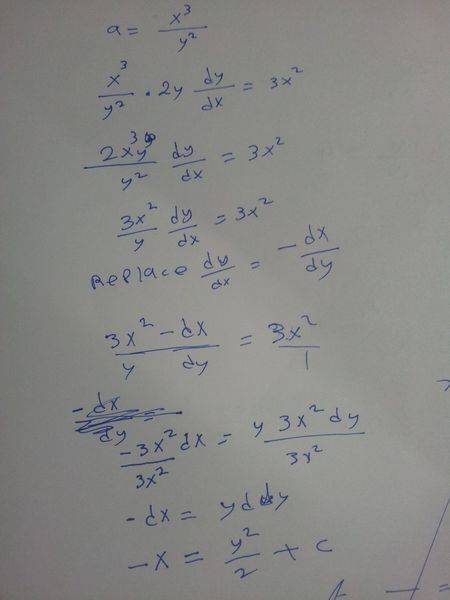 a = x³/y²
x³/y² · 2y dy/dx = 3x²
2x³y/y² dy/dx = 3x²
3x²/y dy/dx = 3x²
Replace dy/dx = -dx/dy
3x²/y -dx/dy = 3x²/1
-dx/dy =
-3x²/3x² dx = y 3x² dy/3x²
-dx = y ddy
-x = y²/2 + c